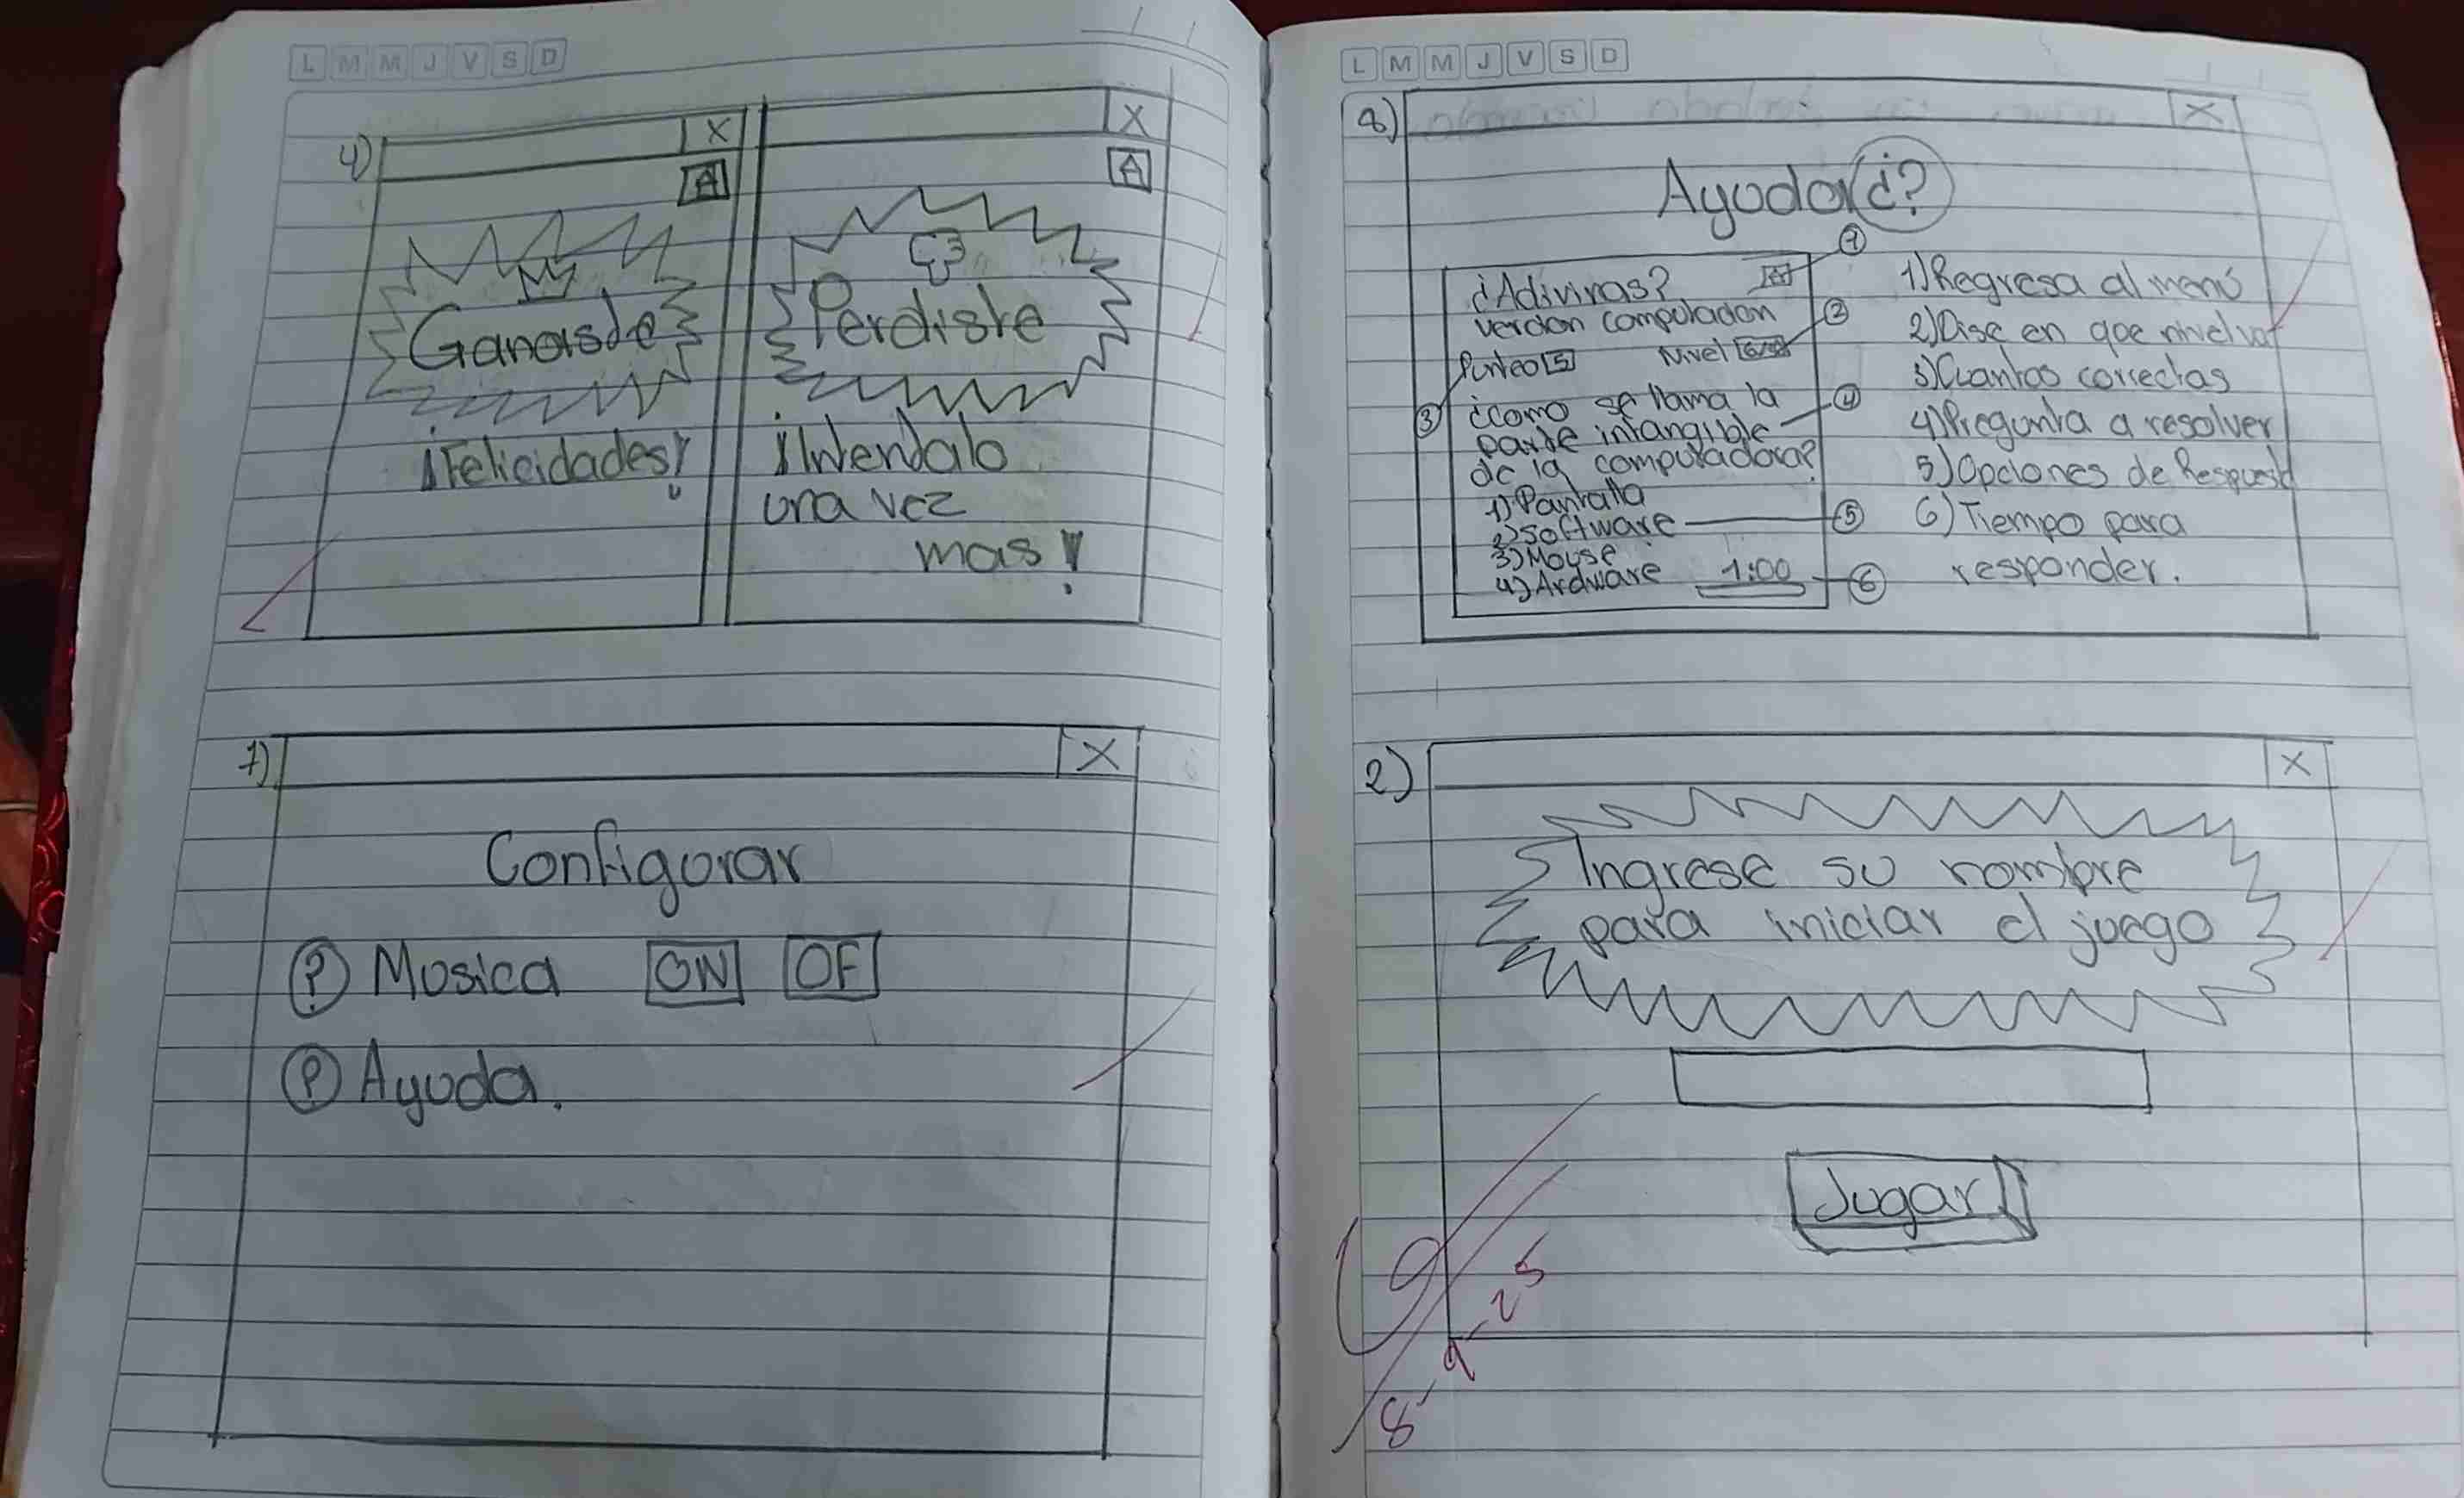 L M M J V S D
4)
X
X
A
A
Ganaste
¡Felicidades!
Perdiste
¡Intentalo
una vez
mas!
7)
X
Configurar
? Musica ON OF
? Ayuda.
L M M J V S D
8)
X
Ayuda ¿?
¿Adivinas?
version computadon
Punteo 5 Nivel
¿Como se llama la
parte intangible
de la computadora?
1) Pantalla
2) Software
3) Mouse
4) Ardware 1:00
1
2
3
4
5
6
1) Regresa al menú
2) Dise en que nivel va
3) Cuantas correctas
4) Pregunta a resolver
5) Opciones de Respuest
6) Tiempo para
responder.
2)
X
Ingrese su nombre
para iniciar el juego
Jugar